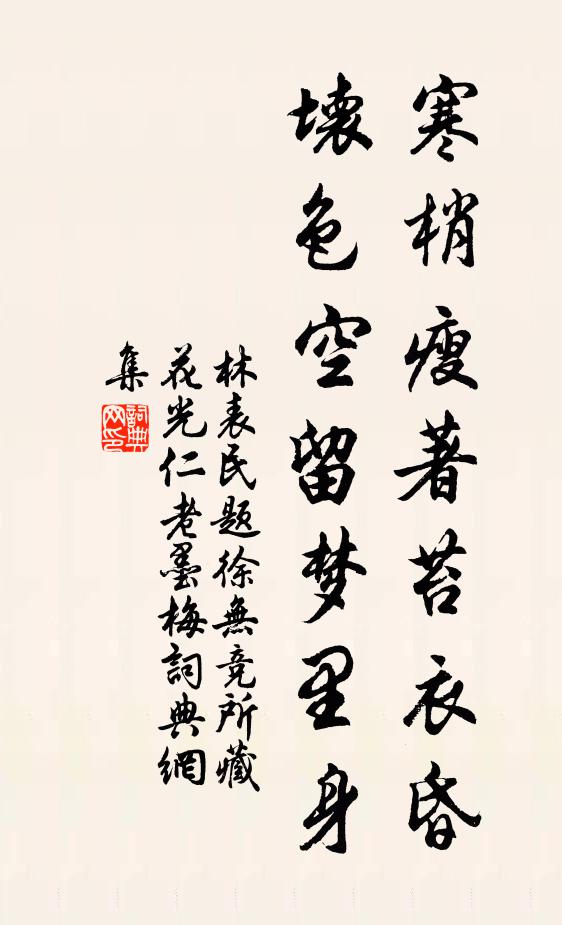 寒梢瘦著苔衣昏
壞色空留梦里身
林表民題徐無竞所藏
花光仁老墨梅詞典網
集
詞典
网印